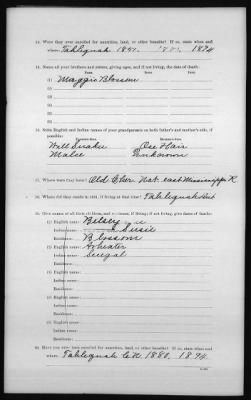 14. Were they ever enrolled for annuities, land, or other benefits? If so, state when and
where: Tahlequah 1851. 1894
15. Name all your brothers and sisters, giving ages, and if not living, the date of death:
(1) Maggie Blossom
(2)
(3)
(4)
(5)
(6)
16. State English and Indian names of your grandparents on both father's and mother's side, if
possible:
Will Drake Ose Hair
Malee Unknown
17. Where were they born? Old Cher. Nat. east Mississippi R
18. Where did they reside in 1851, if living at that time? Tahlequah Dist
19. Give names of all their children, and residence, if living; if not living, give dates of death:
(1) English name: Betsey
Indian name: Susie
Residence: Blossom
(2) English name:
Indian name: Seegal
Residence:
(3) English name:
Indian name:
Residence:
(4) English name:
Indian name:
Residence:
(5) English name:
Indian name:
Residence:
20. Have you ever been enrolled for annuities, land, or other benefits? If so, state when and
where: Tahlequah C.N. 1880, 1894.